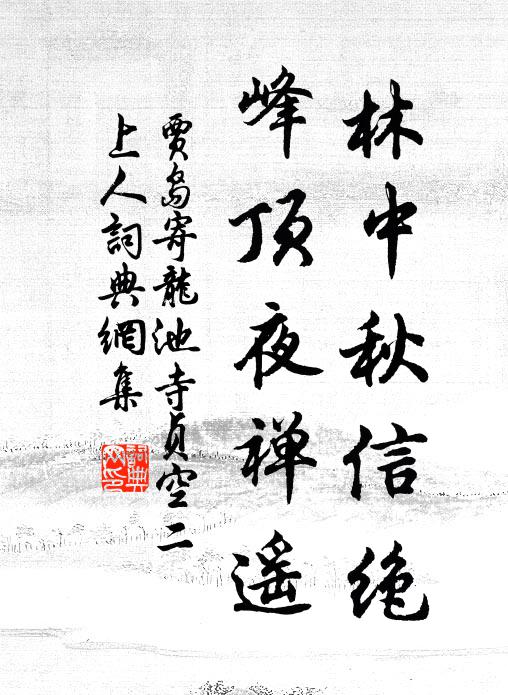 林中秋信绝
峰顶夜禅遥
賈島寄龍池寺貞空二
上人詞典網集
詞典网印